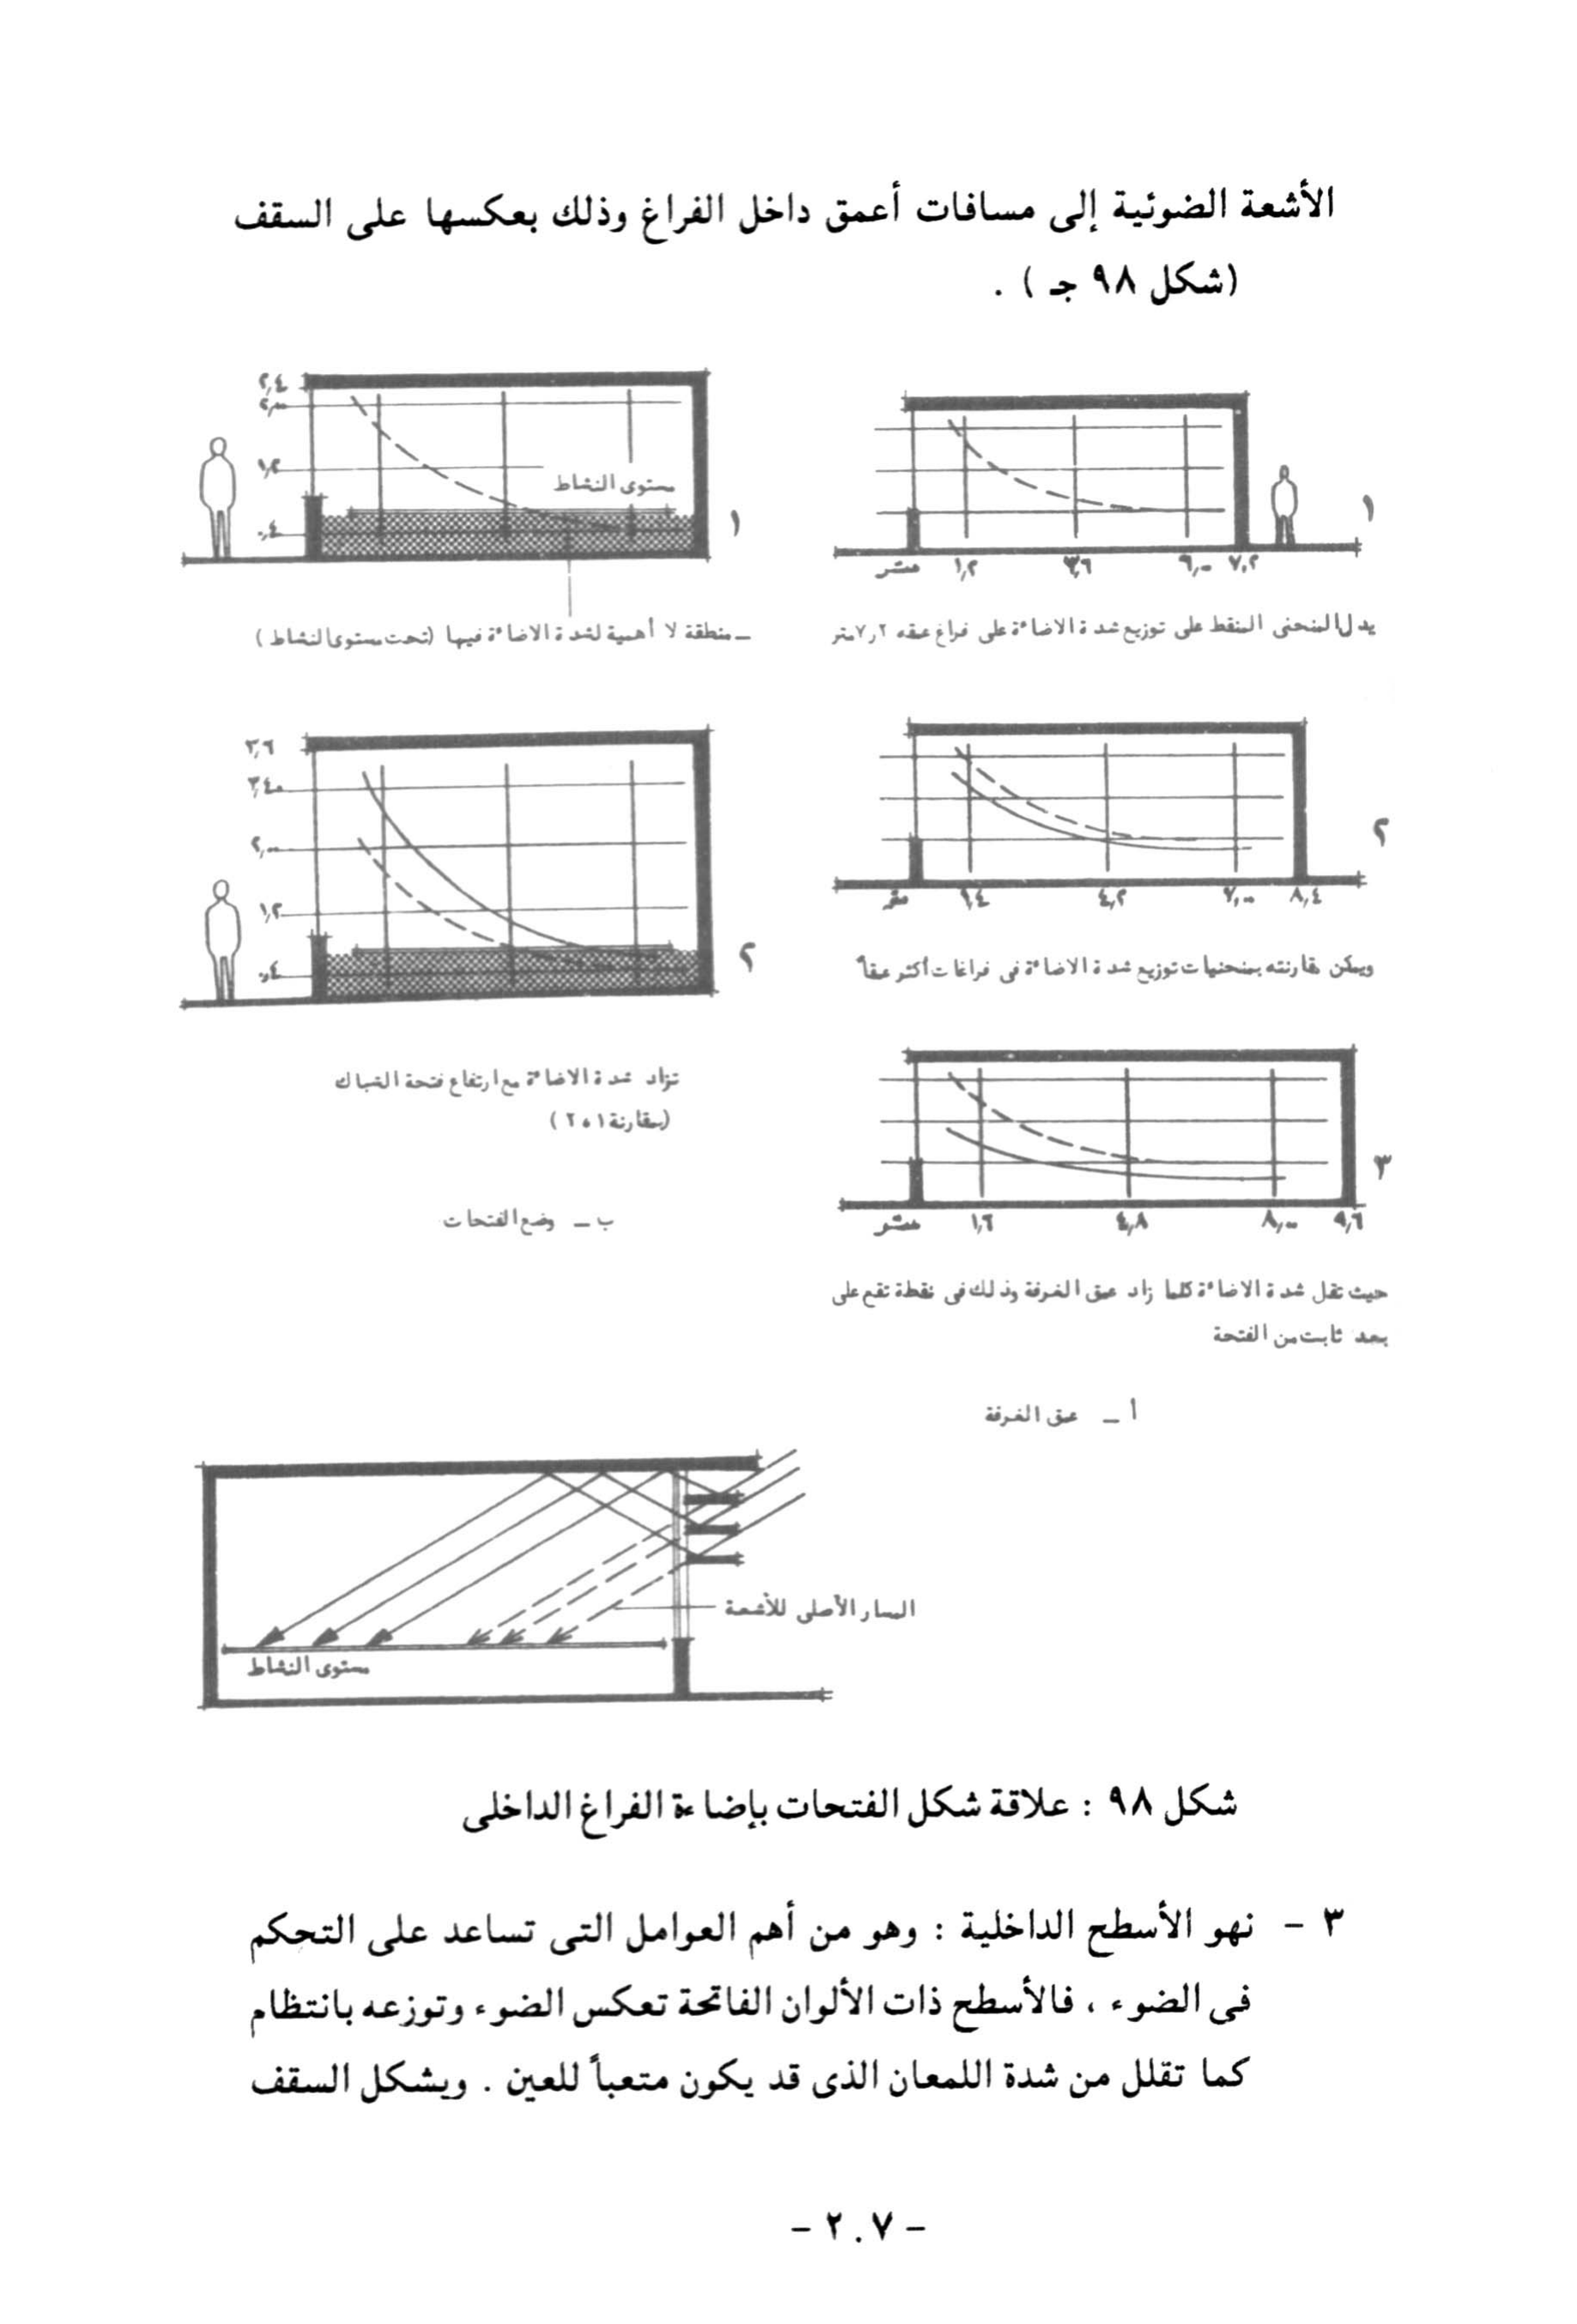 الأشعة الضوئية إلى مسافات أعمق داخل الفراغ وذلك بعكسها على السقف
(شكل ٩٨ جـ ) .
١
متر ١,٢ ٣,٦ ٦,٠٠ ٧,٢
يدل المنحنى المنقط على توزيع شدة الاضاءة على فراغ عمقه ٧٫٢ متر
٢
متر ١,٤ ٤,٢ ٧,٠٠ ٨,٤
ويمكن مقارنته بمنحنيات توزيع شدة الاضاءة فى فراغات أكثر عمقاً
٣
متر ١,٦ ٤,٨ ٨,٠٠ ٩,٦
حيث تقل شدة الاضاءة كلما زاد عمق الغرفة وذلك فى نقطة تقع على
بعد ثابت من الفتحة
أ – عمق الغرفة
٢,٤
٢,٠٠
١,٢
مستوى النشاط
٠,٤
١
– منطقة لا أهمية لشدة الاضاءة فيها (تحت مستوى النشاط )
٣,٦
٣,٤٠
٢,٠٠
١,٢
٠,٤
٢
تزاد شدة الاضاءة مع ارتفاع فتحة الشباك
(بمقارنة ١ ، ٢ )
ب – وضع الفتحات
المسار الأصلى للأشعة
مستوى النشاط
شكل ٩٨ : علاقة شكل الفتحات بإضاءة الفراغ الداخلى
٣ – نهو الأسطح الداخلية : وهو من أهم العوامل التى تساعد على التحكم
فى الضوء ، فالأسطح ذات الألوان الفاتحة تعكس الضوء وتوزعه بانتظام
كما تقلل من شدة اللمعان الذى قد يكون متعباً للعين . ويشكل السقف
– ٢٠٧ –